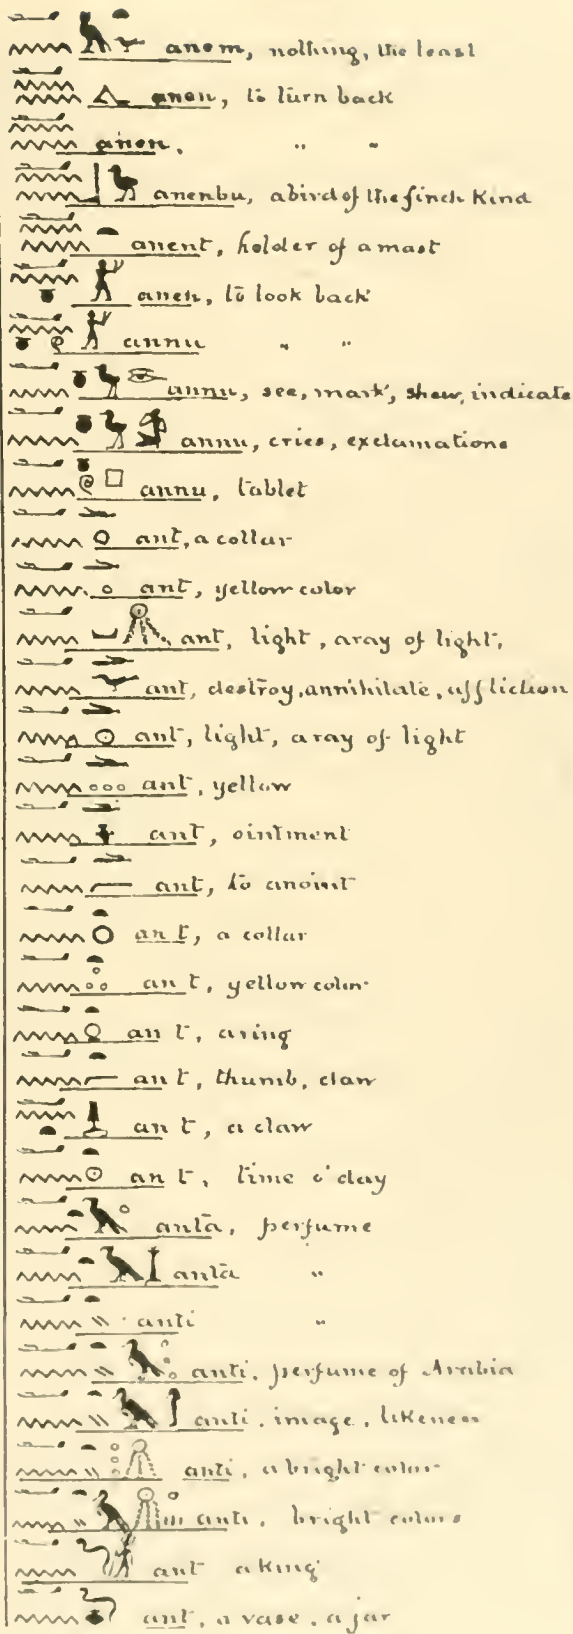 anem, nothing, the least
anen, to turn back
anen, " "
anenbu, a bird of the finch Kind
anent, holder of a mast
anen, to look back
annu " "
annu, see, mark, shew, indicate
annu, cries, exclamations
annu, tablet
ant, a collar
ant, yellow color
ant, light, a ray of light,
ant, destroy, annihilate, affliction
ant, light, a ray of light
ant, yellow
ant, ointment
ant, to anoint
an t, a collar
an t, yellow color
an t, a ring
an t, thumb, claw
an t, a claw
an t, time o' day
antā, perfume
antā "
anti "
anti, perfume of Arabia
anti, image, likeness
anti, a bright color
anti, bright colors
ant a king
ant, a vase, a jar